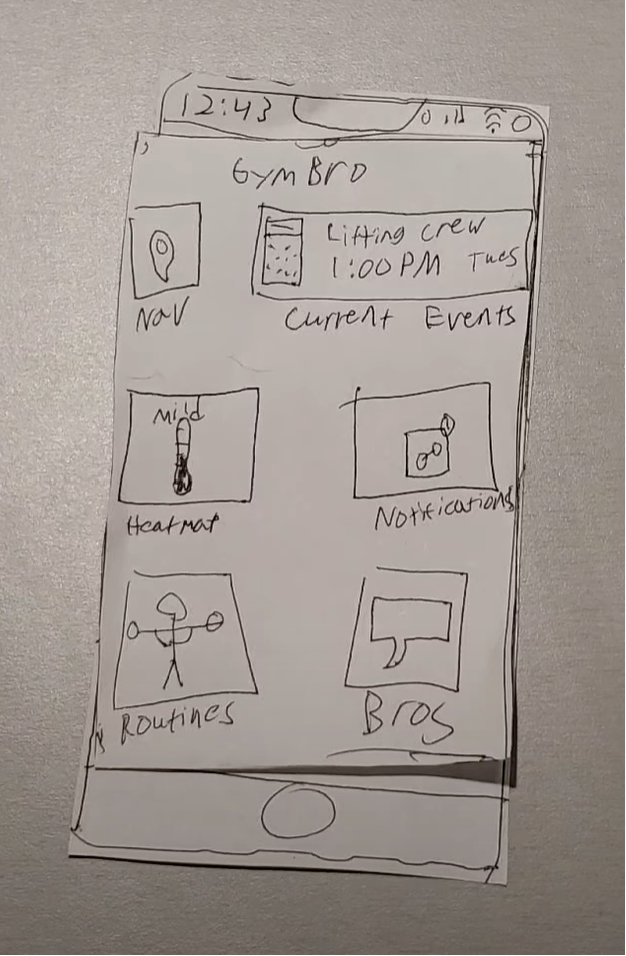 12:43
Gym Bro
Lifting crew
1:00 PM Tues
Nav
Current Events
Mild
Heatmat
Notifications
Routines
Bros